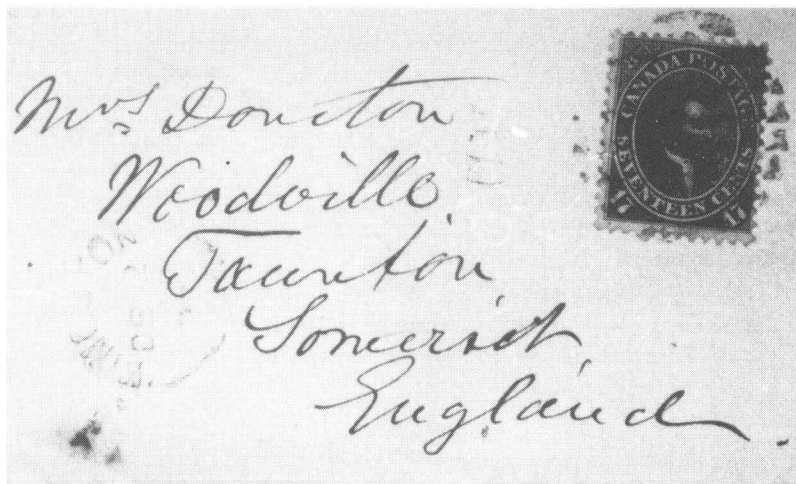 Mrs Douston
Woodville
Taunton
Somerset
England.
CANADA POSTAGE
SEVENTEEN CENTS
17 17